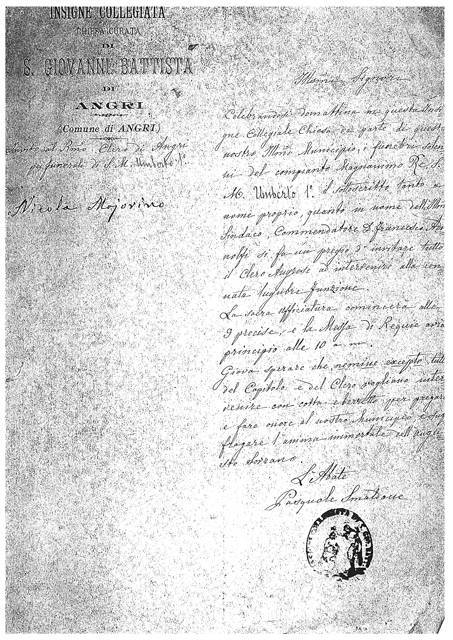 INSIGNE COLLEGIATA
CHIESA CURATA
DI
S. GIOVANNI BATTISTA
DI
ANGRI
(Comune di ANGRI)
Clero di Angri
funerali di S. M. Umberto 1°
Nicola Mojovino
Celebrandosi domattina in questa Insi
gne Collegiale Chiesa da parte di questo
nostro Municipio, i funebri solen
ni del compianto Magnanimo Re, S.
M. Umberto 1°. Il sottoscritto tanto a
nome proprio, quanto in nome dell'Illmo
Sindaco, Commendatore D. Francesco
si fa un pregio d'invitare tutto
il Clero Angrese ad intervenire alla
lugubre funzione.
La sacra ufficiatura comincerà alle
9 precise, e la Messa di Requie avrà
principio alle 10 a. m.
Giova sperare che, nemine excepto, tutti
del Capitolo e del Clero vogliano inter
venire con cotta e berretto, per
e fare onore al nostro Municipio e suf
fragare l'anima immortale dell'Augu
sto Sovrano.
L'Abate
Pasquale Smaldone